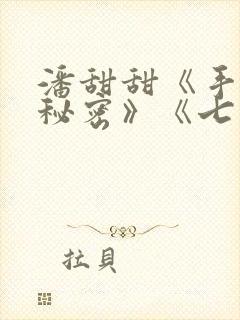 潘甜甜《手
秘密》《七
拉貝